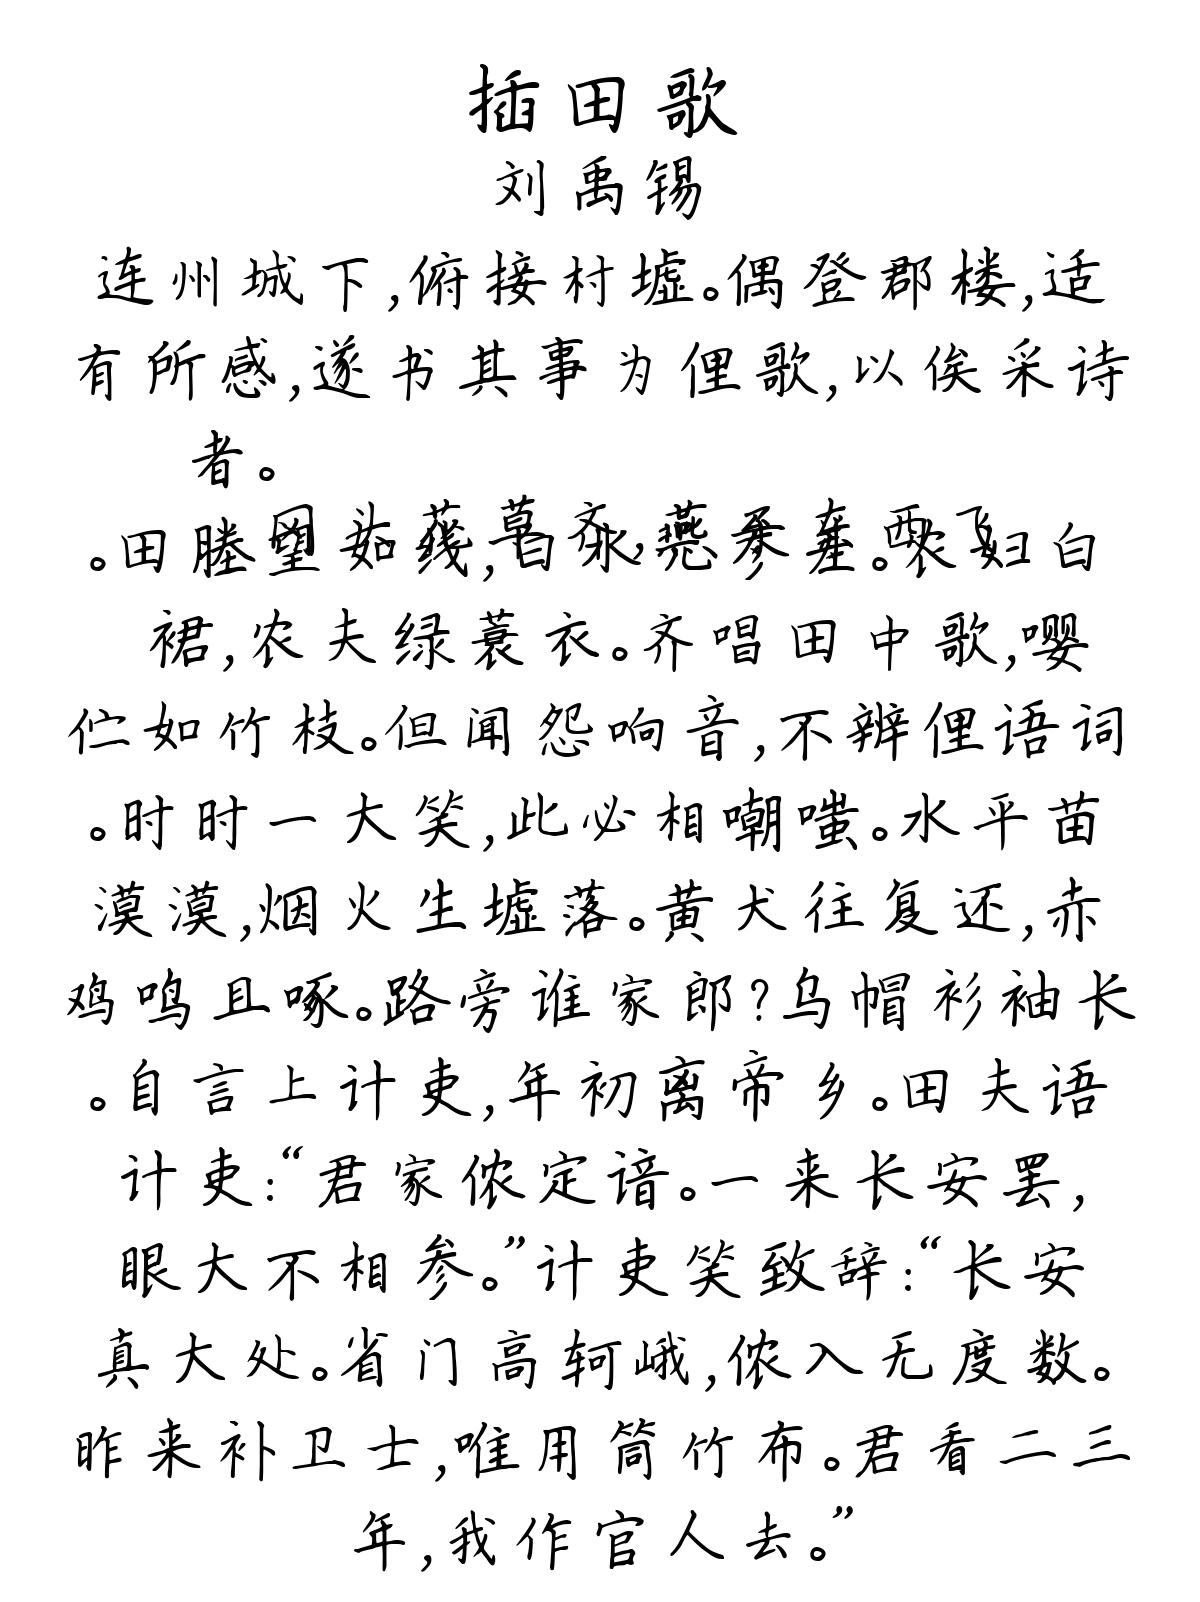 插田歌
刘禹锡
连州城下,俯接村墟。偶登郡楼,适
有所感,遂书其事为俚歌,以俟采诗
者。
冈头花草齐,燕子东西飞
。田塍望如线,白水光参差。农妇白
裙,农夫绿蓑衣。齐唱田中歌,嘤
伫如竹枝。但闻怨响音,不辨俚语词
。时时一大笑,此必相嘲嗤。水平苗
漠漠,烟火生墟落。黄犬往复还,赤
鸡鸣且啄。路旁谁家郎?乌帽衫袖长
。自言上计吏,年初离帝乡。田夫语
计吏:“君家侬定谙。一来长安罢,
眼大不相参。”计吏笑致辞:“长安
真大处。省门高轲峨,侬入无度数。
昨来补卫士,唯用筒竹布。君看二三
年,我作官人去。”